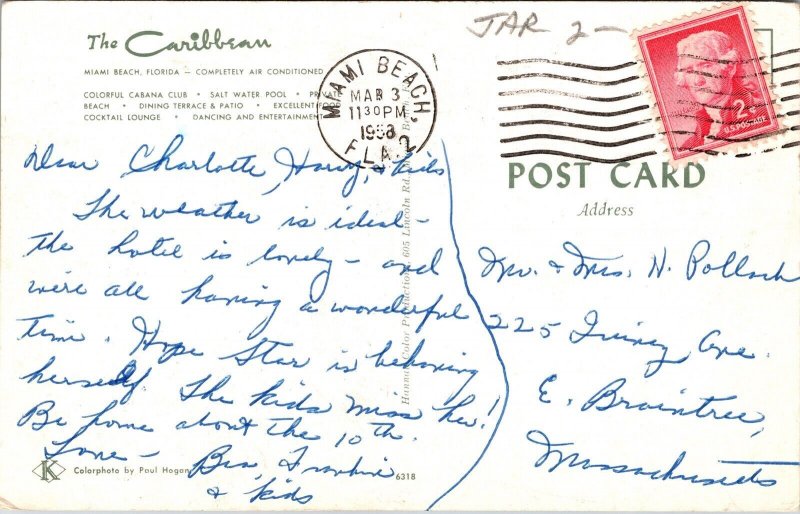 The Caribbean
MIAMI BEACH, FLORIDA — COMPLETELY AIR CONDITIONED
COLORFUL CABANA CLUB • SALT WATER POOL • PRIVATE
BEACH • DINING TERRACE & PATIO • EXCELLENT FOOD
COCKTAIL LOUNGE • DANCING AND ENTERTAINMENT
MIAMI BEACH, FLA. 2
MAR 3
11 30 PM
1958
JAR 2-
2¢
U.S. POSTAGE
POST CARD
Address
Dear Charlotte, Harry, & kids
The weather is ideal -
the hotel is lovely - and
we're all having a wonderful
time. Hope Star is behaving
herself. The kids miss her!
Be home about the 10th.
Love -
Bea, Frankie
& kids
Mr. & Mrs. H. Pollack
225 Ave.
E. Braintree,
Massachusetts
Color Production, 605 Lincoln Rd.
K
Colorphoto by Paul Hogan
6318